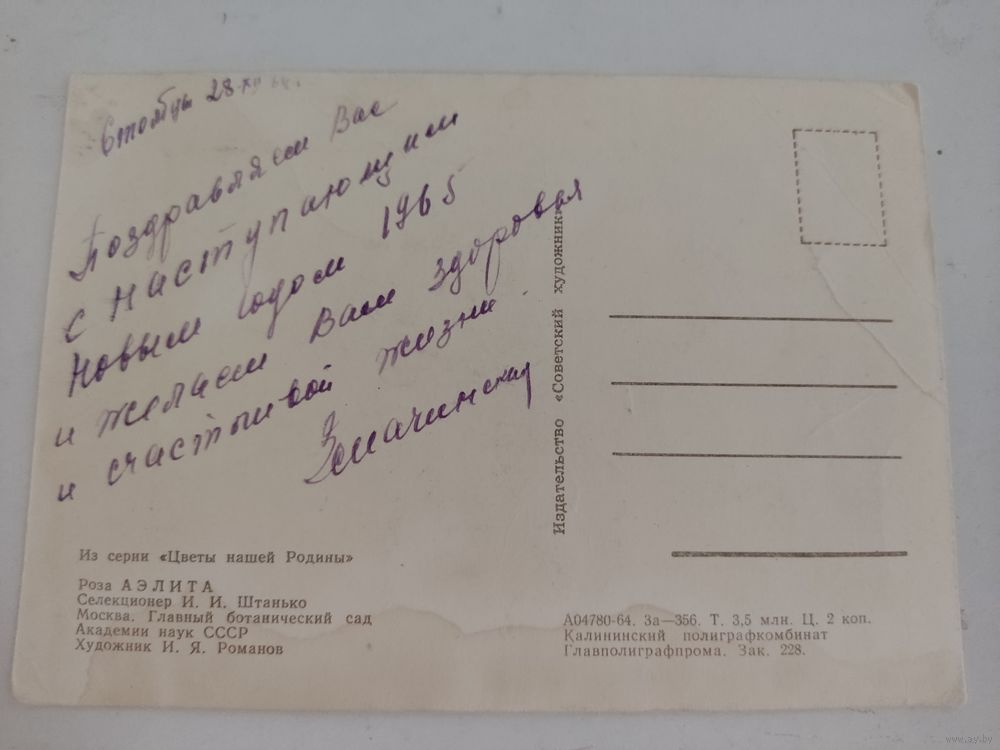 Столбцы 28-XII 64 г.
Поздравляем Вас
с наступающим
Новым годом 1965
и желаем Вам здоровья
и счастливой жизни.
Из серии «Цветы нашей Родины»
Роза АЭЛИТА
Селекционер И. И. Штанько
Москва. Главный ботанический сад
Академии наук СССР
Художник И. Я. Романов
Издательство «Советский художник»
А04780-64. За—356. Т. 3,5 млн. Ц. 2 коп.
Калининский полиграфкомбинат
Главполиграфпрома. Зак. 228.
www.ay.by